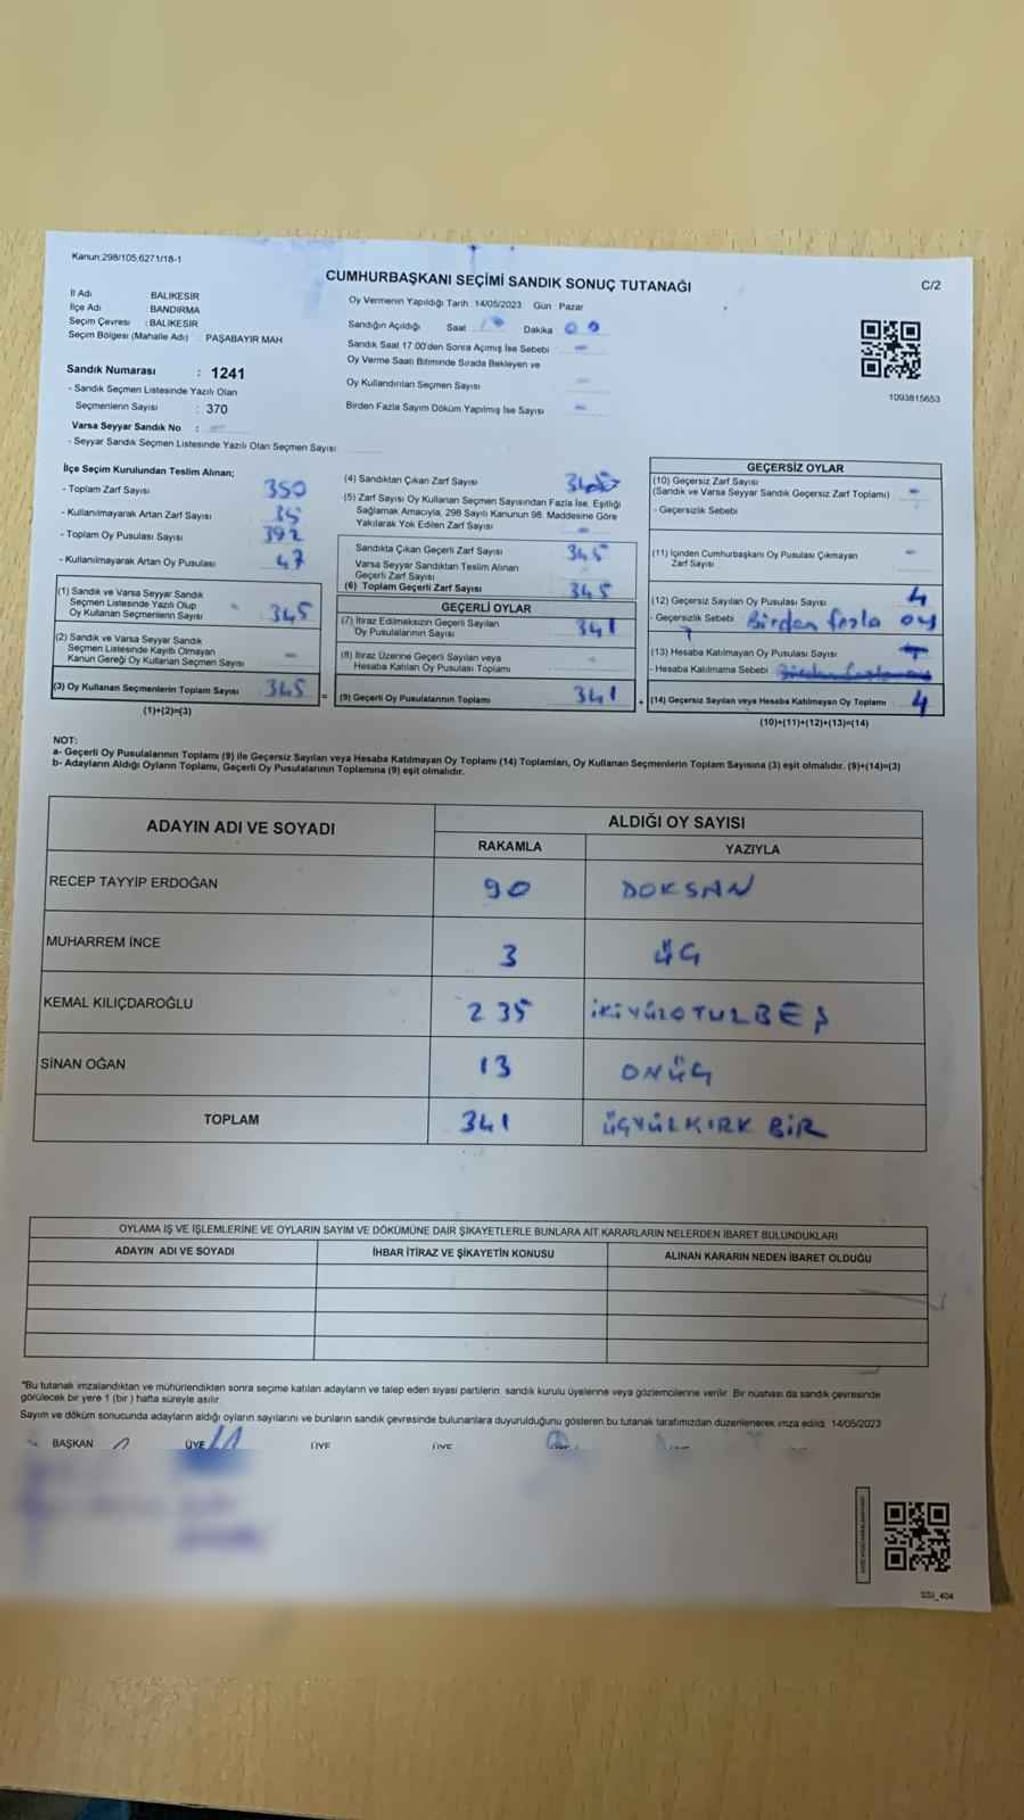 Kanun:298/105,6271/18-1
CUMHURBAŞKANI SEÇİMİ SANDIK SONUÇ TUTANAĞI
C/2
İl Adı BALIKESİR
İlçe Adı BANDIRMA
Seçim Çevresi : BALIKESİR
Seçim Bölgesi (Mahalle Adı) : PAŞABAYIR MAH
Sandık Numarası : 1241
- Sandık Seçmen Listesinde Yazılı Olan
Seçmenlerin Sayısı : 370
Varsa Seyyar Sandık No :
- Seyyar Sandık Seçmen Listesinde Yazılı Olan Seçmen Sayısı
Oy Vermenin Yapıldığı Tarih : 14/05/2023 Gün : Pazar
Sandığın Açıldığı Saat Dakika 00
Sandık Saat 17.00'den Sonra Açımış İse Sebebi
Oy Verme Saati Bitiminde Sırada Bekleyen ve
Oy Kullandırılan Seçmen Sayısı
Birden Fazla Sayım Döküm Yapılmış İse Sayısı
1093815653
İlçe Seçim Kurulundan Teslim Alınan;
- Toplam Zarf Sayısı 350
- Kullanılmayarak Artan Zarf Sayısı
- Toplam Oy Pusulası Sayısı 392
- Kullanılmayarak Artan Oy Pusulası 47
(1) Sandık ve Varsa Seyyar Sandık
Seçmen Listesinde Yazılı Olup
Oy Kullanan Seçmenlerin Sayısı 345
(2) Sandık ve Varsa Seyyar Sandık
Seçmen Listesinde Kayıtlı Olmayan
Kanun Gereği Oy Kullanan Seçmen Sayısı -
(3) Oy Kullanan Seçmenlerin Toplam Sayısı 345
(1)+(2)=(3)
(4) Sandıktan Çıkan Zarf Sayısı
(5) Zarf Sayısı Oy Kullanan Seçmen Sayısından Fazla İse, Eşitliği
Sağlamak Amacıyla, 298 Sayılı Kanunun 98. Maddesine Göre
Yakılarak Yok Edilen Zarf Sayısı -
Sandıkta Çıkan Geçerli Zarf Sayısı 345
Varsa Seyyar Sandıktan Teslim Alınan
Geçerli Zarf Sayısı
(6) Toplam Geçerli Zarf Sayısı 345
GEÇERLİ OYLAR
(7) İtiraz Edilmeksizin Geçerli Sayılan
Oy Pusulalarının Sayısı 341
(8) İtiraz Üzerine Geçerli Sayılan veya
Hesaba Katılan Oy Pusulası Toplamı
= (9) Geçerli Oy Pusulalarının Toplamı 341
GEÇERSİZ OYLAR
(10) Geçersiz Zarf Sayısı
(Sandık ve Varsa Seyyar Sandık Geçersiz Zarf Toplamı) -
- Geçersizlik Sebebi
(11) İçinden Cumhurbaşkanı Oy Pusulası Çıkmayan
Zarf Sayısı -
(12) Geçersiz Sayılan Oy Pusulası Sayısı 4
- Geçersizlik Sebebi Birden fazla oy
(13) Hesaba Katılmayan Oy Pusulası Sayısı
- Hesaba Katılmama Sebebi
+ (14) Geçersiz Sayılan veya Hesaba Katılmayan Oy Toplamı 4
(10)+(11)+(12)+(13)=(14)
NOT:
a- Geçerli Oy Pusulalarının Toplamı (9) ile Geçersiz Sayılan veya Hesaba Katılmayan Oy Toplamı (14) Toplamları, Oy Kullanan Seçmenlerin Toplam Sayısına (3) eşit olmalıdır. (9)+(14)=(3)
b- Adayların Aldığı Oyların Toplamı, Geçerli Oy Pusulalarının Toplamına (9) eşit olmalıdır.
ADAYIN ADI VE SOYADI ALDIĞI OY SAYISI
RAKAMLA YAZIYLA
RECEP TAYYİP ERDOĞAN 90 DOKSAN
MUHARREM İNCE 3 ÜÇ
KEMAL KILIÇDAROĞLU 235 İKİYÜZOTUZBEŞ
SİNAN OĞAN 13 ONÜÇ
TOPLAM 341 ÜÇYÜZKIRK BİR
OYLAMA İŞ VE İŞLEMLERİNE VE OYLARIN SAYIM VE DÖKÜMÜNE DAİR ŞİKAYETLERLE BUNLARA AİT KARARLARIN NELERDEN İBARET BULUNDUKLARI
ADAYIN ADI VE SOYADI İHBAR İTİRAZ VE ŞİKAYETİN KONUSU ALINAN KARARIN NEDEN İBARET OLDUĞU
"Bu tutanak imzalandıktan ve mühürlendikten sonra seçime katılan adayların ve talep eden siyasi partilerin sandık kurulu üyelerine veya gözlemcilerine verilir. Bir nüshası da sandık çevresinde
görülecek bir yere 1 (bir) hafta süreyle asılır
Sayım ve döküm sonucunda adayların aldığı oyların sayılarını ve bunların sandık çevresinde bulunanlara duyurulduğunu gösteren bu tutanak tarafımızdan düzenlenerek imza edildi. 14/05/2023
BAŞKAN ÜYE ÜYE ÜYE
SSI_404